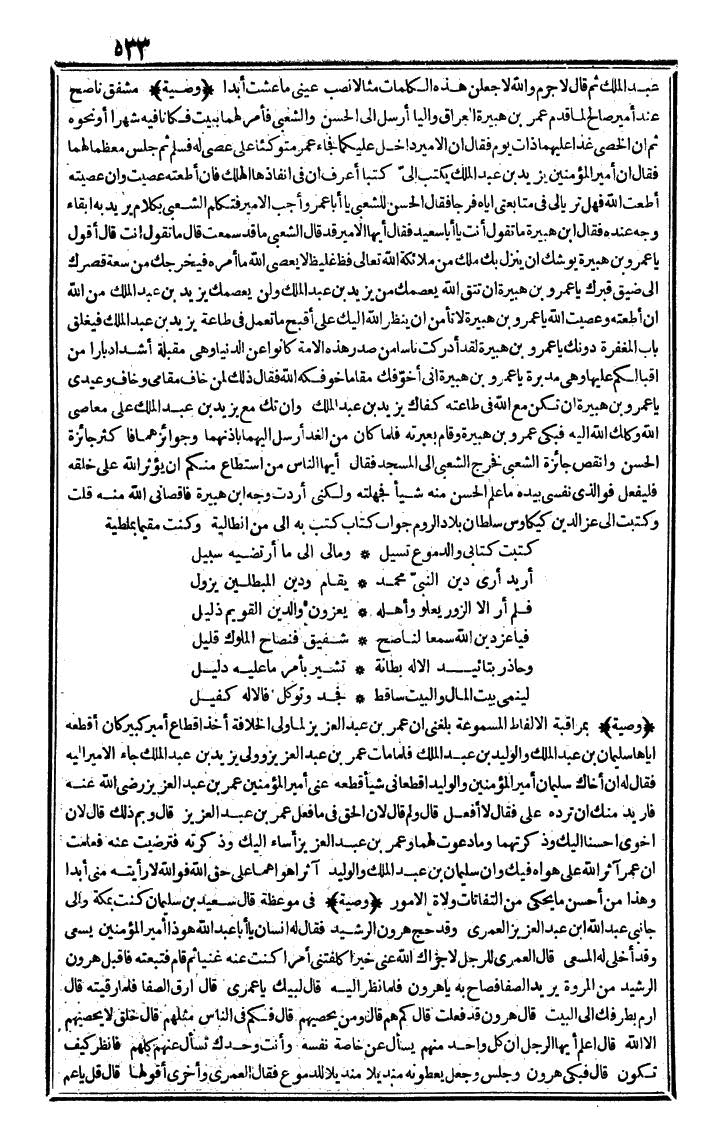 ٥٣٣
عبد الملك ثم قال لا جرم والله لا جعلن هذه الكلمات مثالا نصب عيني ما عشت أبدا ﴿وصية﴾ مشفق ناصح
عند أمير صالح لما قدم عمر بن هبيرة العراق واليا أرسل الى الحسن والشعبي فأمر لهما ببيت فكانا فيه شهرا أو نحوه
ثم ان الخصى غدا عليهما ذات يوم فقال ان الامير داخل عليكما فجاء عمر متوكئا على عصى له فسلم ثم جلس معظما لهما
فقال ان أمير المؤمنين يزيد بن عبد الملك يكتب إلىّ كتبا أعرف ان فى انفاذها الهلك فان أطعته عصيت وان عصيته
أطعت الله فهل تريا لى فى متابعتى اياه فرجا فقال الحسن للشعبى يا أبا عمرو أجب الامير فتكلم الشعبى بكلام يريد به ابقاء
وجه عنده فقال ابن هبيرة ما تقول أنت يا أبا سعيد فقال أيها الامير قد قال الشعبى ما قد سمعت قال ما تقول انت قال أقول
يا عمرو بن هبيرة يوشك ان ينزل بك ملك من ملائكة الله تعالى فظ غليظ لا يعصى الله ما أمره فيخرجك من سعة قصرك
الى ضيق قبرك يا عمرو بن هبيرة ان تتق الله يعصمك من يزيد بن عبد الملك ولن يعصمك يزيد بن عبد الملك من الله
ان أطعته وعصيت الله يا عمرو بن هبيرة لا تأمن ان ينظر الله اليك على أقبح ما تعمل فى طاعة يزيد بن عبد الملك فيغلق
باب المغفرة دونك يا عمرو بن هبيرة لقد أدركت ناسا من صدر هذه الامة كانوا عن الدنيا وهى مقبلة أشد ادبارا من
اقبالكم عليها وهى مدبرة يا عمرو بن هبيرة انى أخوّفك مقاما خوفكه الله فقال ذلك لمن خاف مقامى وخاف وعيدى
يا عمرو بن هبيرة ان تكن مع الله فى طاعته كفاك يزيد بن عبد الملك وان تك مع يزيد بن عبد الملك على معاصى
الله وكلك الله اليه فبكى عمرو بن هبيرة وقام بعبرته فلما كان من الغد أرسل اليهما باذنهما وجوائزهما فاكثر جائزة
الحسن وانقص جائزة الشعبى فخرج الشعبى الى المسجد فقال أيها الناس من استطاع منكم ان يؤثر الله على خلقه
فليفعل فوالذى نفسى بيده ما علم الحسن منه شيأ فجهلته ولكنى أردت وجه ابن هبيرة فاقصانى الله منه قلت
وكتبت الى عز الدين كيكاوس سلطان بلاد الروم جواب كتاب كتب به الى من انطالية وكنت مقيما بملطية
كتبت كتابى والدموع تسيل * ومالى الى ما أرتضيه سبيل
أريد أرى دين النبىّ محمد * يقام ودين المبطلين يزول
فلم أر الا الزور يعلو وأهله * يعزون والدين القويم ذليل
فيا عز دين الله سمعا لناصح * شفيق فنصاح الملوك قليل
وحاذر بتائيد الاله بطانة * تشير بأمر ما عليه دليل
لينمى بيت المال والبيت ساقط * فجد وتوكل فالاله كفيل
﴿وصية﴾ بمراقبة الالفاظ المسموعة بلغنى ان عمر بن عبد العزيز لما ولى الخلافة أخذ اقطاع أمير كبير كان أقطعه
اياها سليمان بن عبد الملك والوليد بن عبد الملك فلما مات عمر بن عبد العزيز وولى يزيد بن عبد الملك جاء الامير اليه
فقال له ان أخاك سليمان أمير المؤمنين والوليد اقطعانى شيأ قطعه عنى أمير المؤمنين عمر بن عبد العزيز رضى الله عنه
فاريد منك ان ترده على فقال لا أفعل قال ولم قال لان الحق فى ما فعل عمر بن عبد العزيز قال وبم ذلك قال لان
اخوى احسنا اليك وذكرتهما وما دعوت لهما وعمر بن عبد العزيز أساء اليك وذكرته فترضيت عنه فعلمت
ان عمر آثر الله على هواه فيك وان سليمان بن عبد الملك والوليد آثرا هواهما على حق الله فوالله لا رأيته منى أبدا
وهذا من أحسن ما يحكى من التفاتات ولاة الامور ﴿وصية﴾ فى موعظة قال سعيد بن سلمان كنت بمكة والى
جانبى عبد الله ابن عبد العزيز العمرى وقد حج هرون الرشيد فقال له انسان يا أبا عبد الله هوذا أمير المؤمنين يسعى
وقد أخلى له المسعى قال العمرى للرجل لا جزاك الله عنى خيرا كلفتنى أمرا كنت عنه غنيا ثم قام فتبعته فاقبل هرون
الرشيد من المروة يريد الصفا فصاح به يا هرون فلما نظر اليه قال لبيك يا عمرى قال ارق الصفا فلما رقيته قال
ارم بطرفك الى البيت قال هرون قد فعلت قال كم هم قال ومن يحصيهم قال فكم فى الناس مثلهم قال خلق لا يحصيهم
الا الله قال اعلم أيها الرجل ان كل واحد منهم يسأل عن خاصة نفسه وأنت وحدك تسأل عنهم كلهم فانظر كيف
تكون قال فبكى هرون وجلس وجعل يعطونه منديلا منديلا للدموع فقال العمرى وأخرى أقولها قال قل يا عم